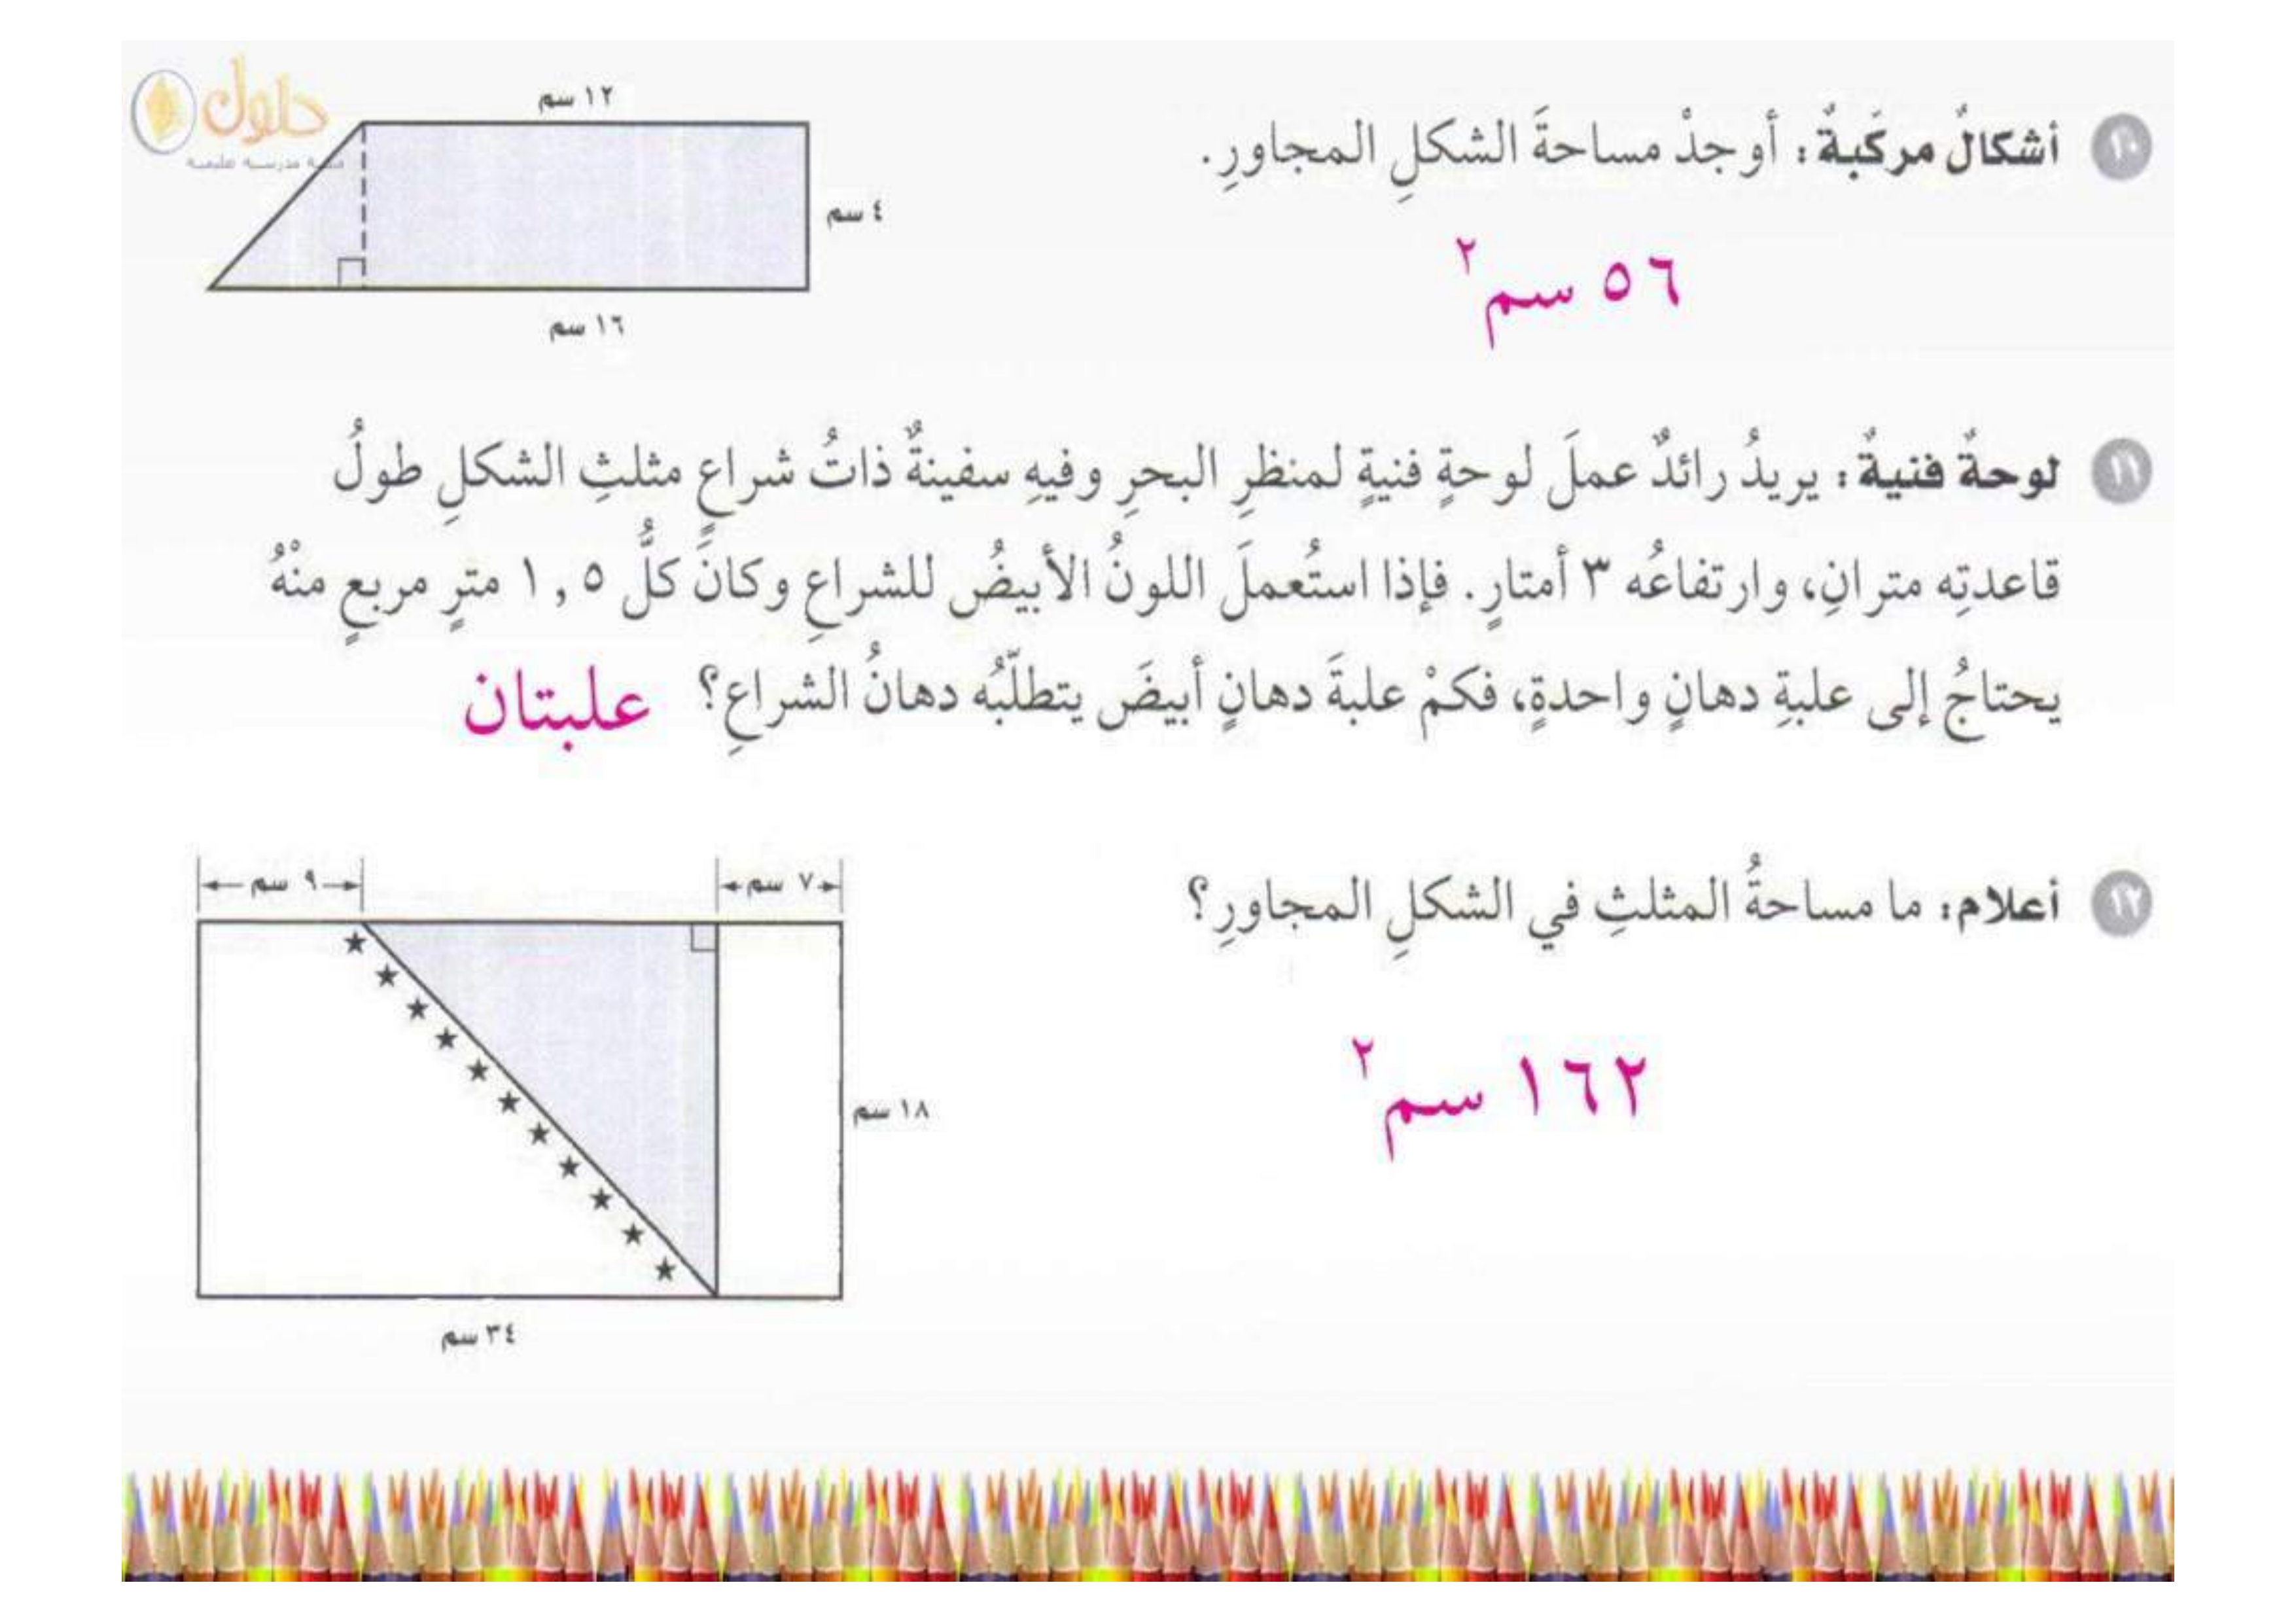 حلول
١٠ أشكالٌ مركَبةٌ: أوجدْ مساحةَ الشكلِ المجاورِ.
١٢ سم
٤ سم
١٦ سم
٥٦ سم٢
١١ لوحةٌ فنيةٌ: يريدُ رائدٌ عملَ لوحةٍ فنيةٍ لمنظرِ البحرِ وفيهِ سفينةٌ ذاتُ شراعٍ مثلثِ الشكلِ طولُ
قاعدتِه مترانِ، وارتفاعُه ٣ أمتارٍ. فإذا استُعملَ اللونُ الأبيضُ للشراعِ وكانَ كلُّ ١,٥ مترٍ مربعٍ منْهُ
يحتاجُ إلى علبةِ دهانٍ واحدةٍ، فكمْ علبةَ دهانٍ أبيضَ يتطلّبُه دهانُ الشراعِ؟ علبتان
١٢ أعلام: ما مساحةُ المثلثِ في الشكلِ المجاورِ؟
٧ سم
٩ سم
١٨ سم
٣٤ سم
١٦٢ سم٢